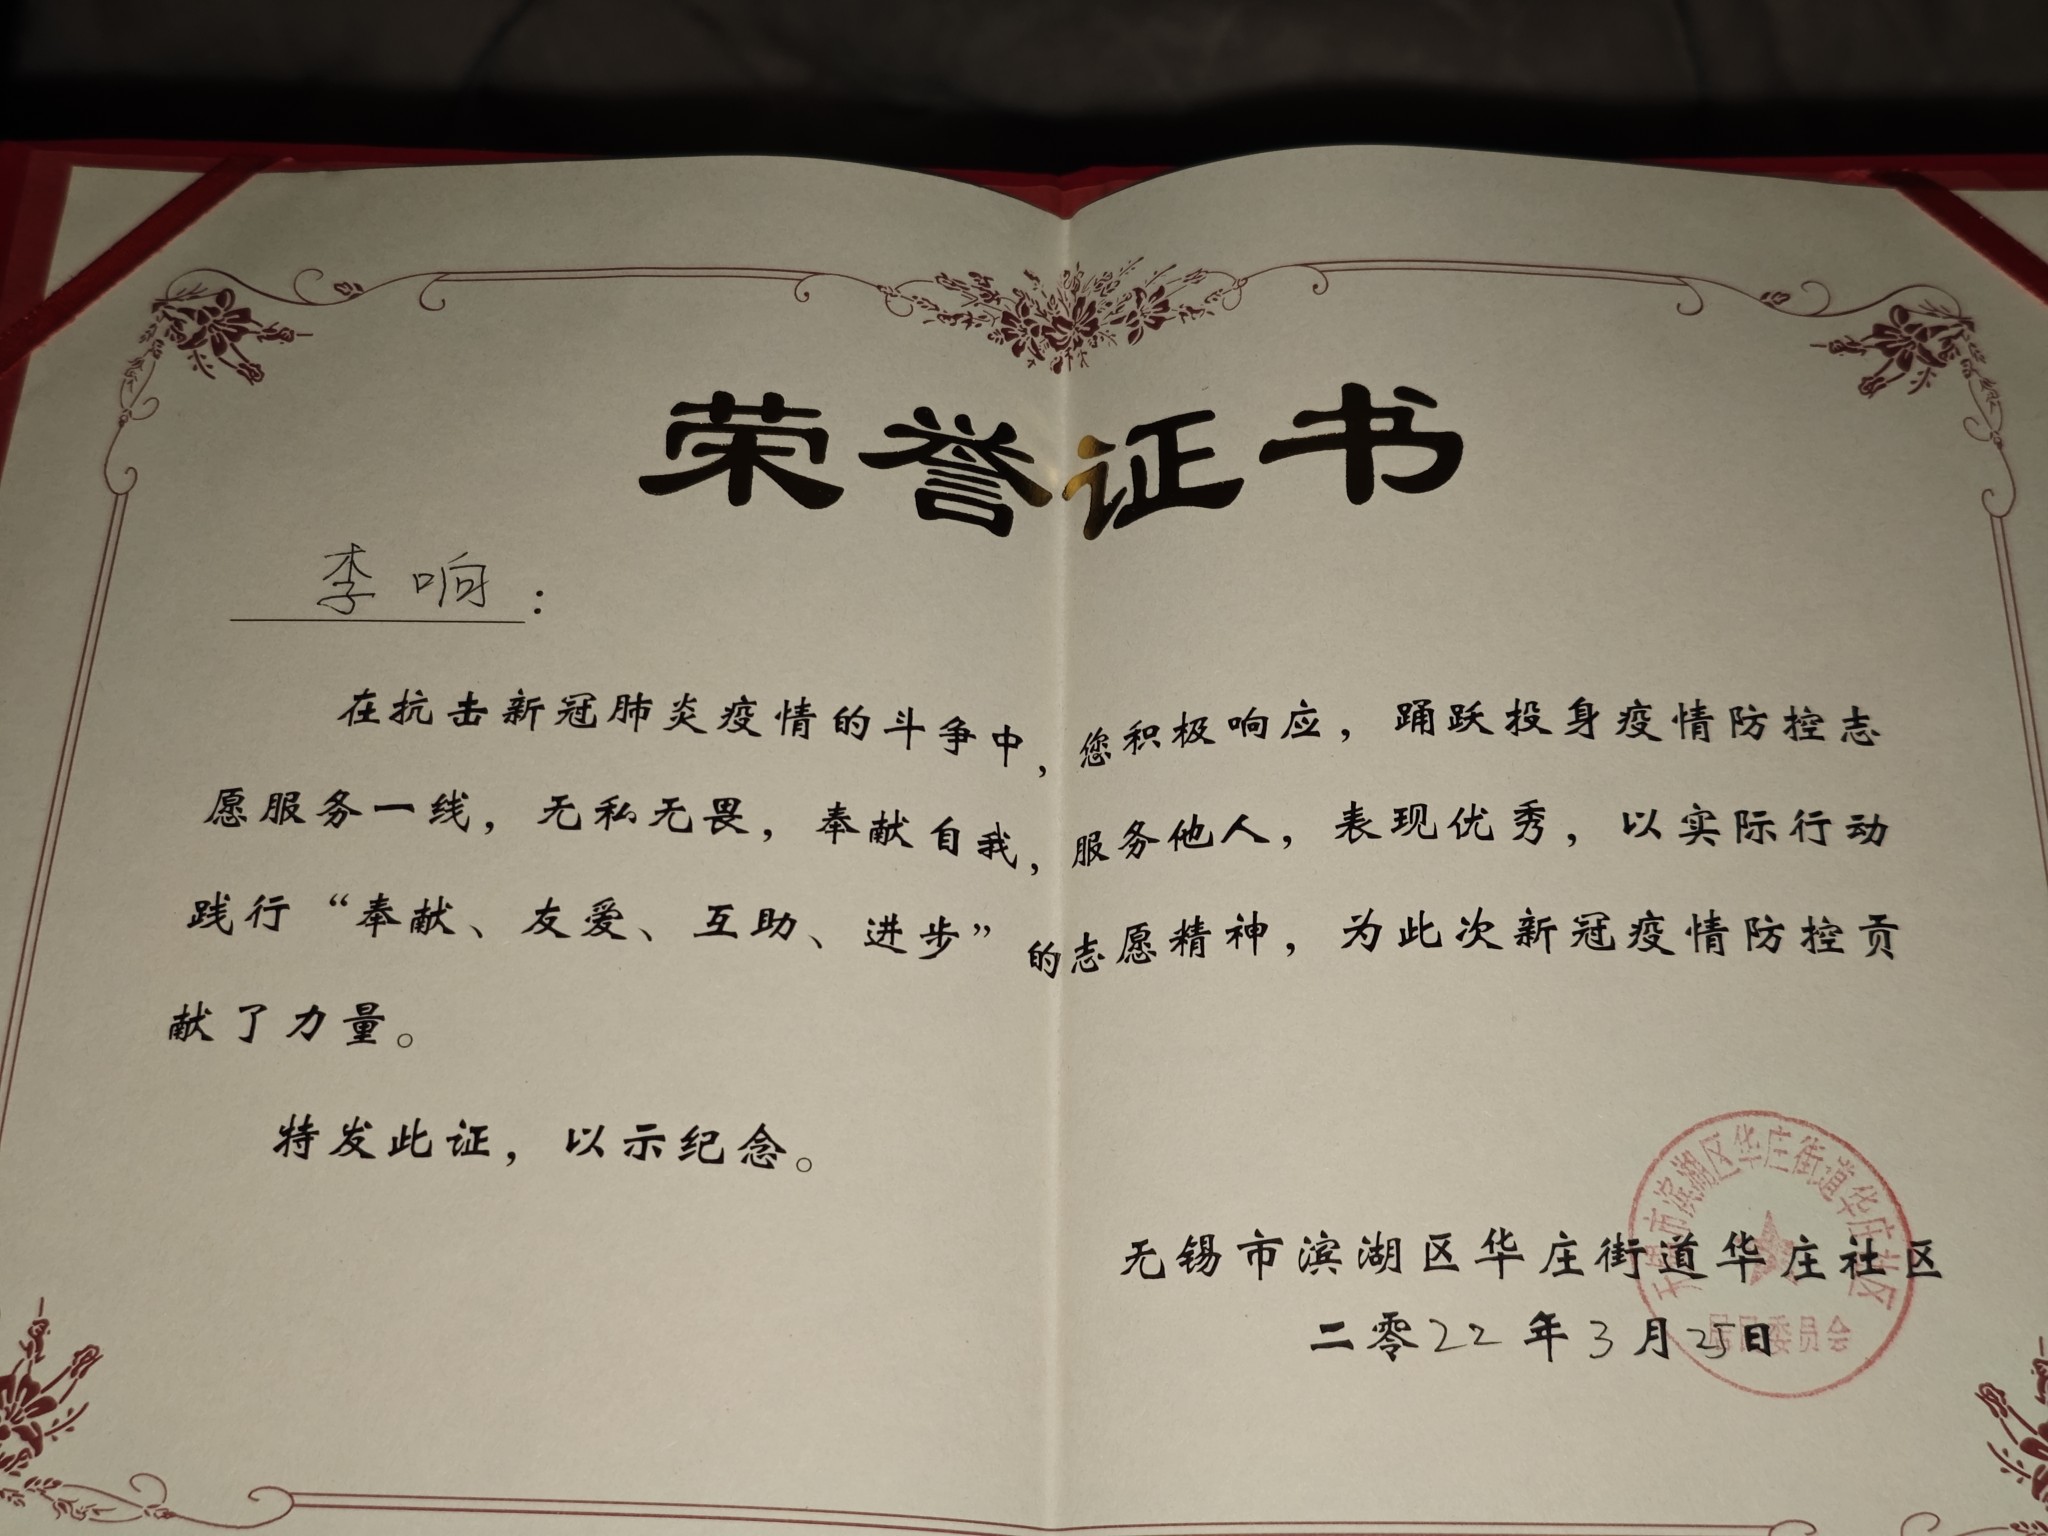 荣誉证书
李响：
在抗击新冠肺炎疫情的斗争中，您积极响应，踊跃投身疫情防控志
愿服务一线，无私无畏，奉献自我，服务他人，表现优秀，以实际行动
践行“奉献、友爱、互助、进步”的志愿精神，为此次新冠疫情防控贡
献了力量。
特发此证，以示纪念。
无锡市滨湖区华庄街道华庄社区
二零22年3月25日
无锡市滨湖区华庄街道华庄社区
居民委员会